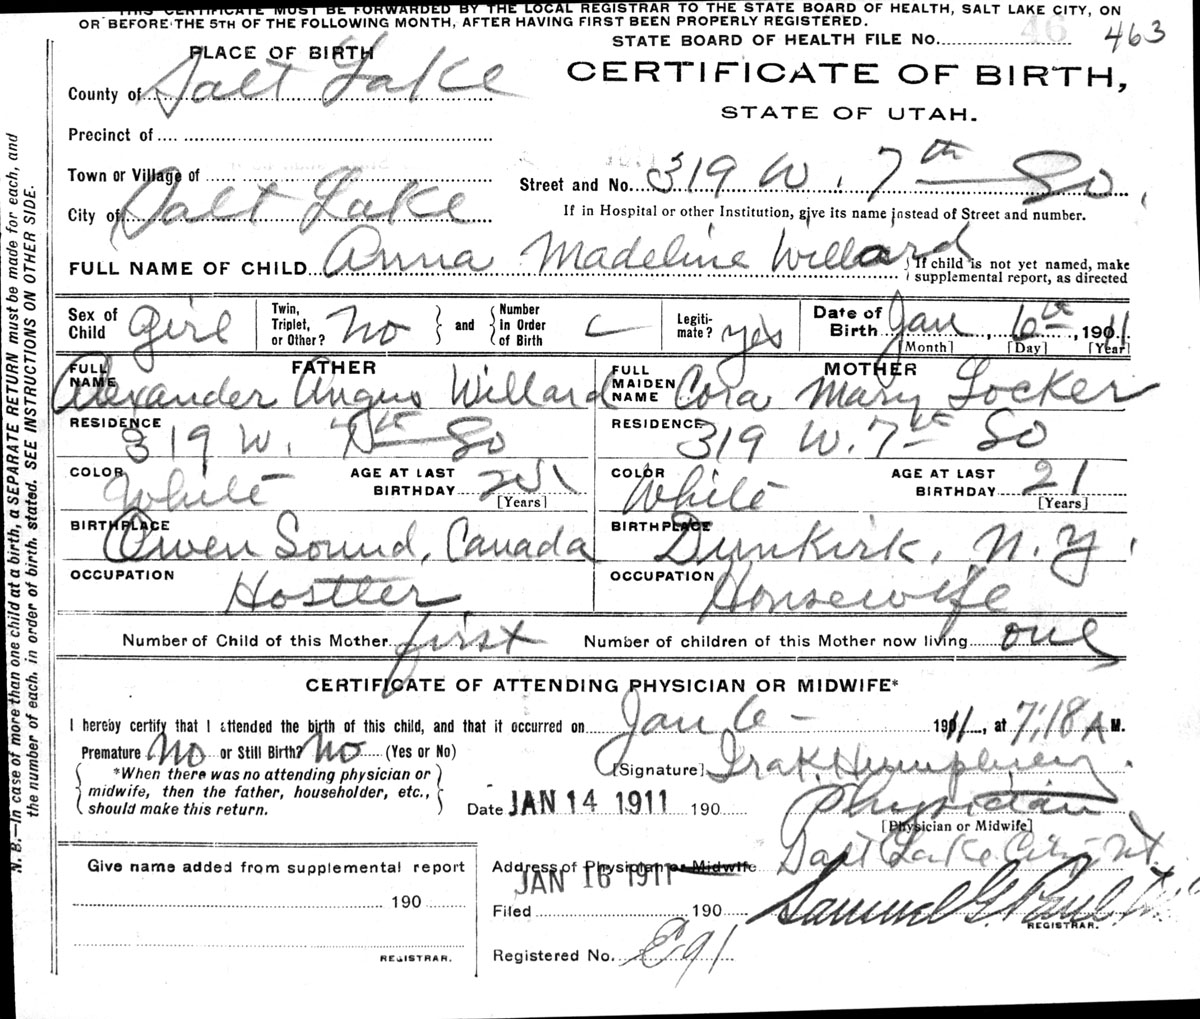 THIS CERTIFICATE MUST BE FORWARDED BY THE LOCAL REGISTRAR TO THE STATE BOARD OF HEALTH, SALT LAKE CITY, ON
OR BEFORE THE 5TH OF THE FOLLOWING MONTH, AFTER HAVING FIRST BEEN PROPERLY REGISTERED.
STATE BOARD OF HEALTH FILE No. 46 463
PLACE OF BIRTH
CERTIFICATE OF BIRTH,
STATE OF UTAH.
County of Salt Lake
Precinct of
Town or Village of
Street and No. 319 W. 7th So.
City of Salt Lake
If in Hospital or other Institution, give its name instead of Street and number.
FULL NAME OF CHILD Anna Madeline Willard
If child is not yet named, make supplemental report, as directed
Sex of Child Girl
Twin, Triplet, or Other? No and Number in Order of Birth
Legitimate? yes
Date of Birth Jan 6th, 1911
[Month] [Day] [Year]
FATHER
FULL NAME Alexander Angus Willard
RESIDENCE 319 W. 7th So
COLOR White
AGE AT LAST BIRTHDAY [Years]
BIRTHPLACE Owen Sound, Canada
OCCUPATION Hostler
MOTHER
FULL MAIDEN NAME Cora Mary Locker
RESIDENCE 319 W. 7th So
COLOR White
AGE AT LAST BIRTHDAY 21 [Years]
BIRTHPLACE Dunkirk, N.Y.
OCCUPATION Housewife
Number of Child of this Mother first Number of children of this Mother now living one
CERTIFICATE OF ATTENDING PHYSICIAN OR MIDWIFE*
I hereby certify that I attended the birth of this child, and that it occurred on Jan 6 - 1911, at 7:18 A M.
Premature No or Still Birth? No (Yes or No)
*When there was no attending physician or midwife, then the father, householder, etc., should make this return.
[Signature] Ira K. Humphrey
Date JAN 14 1911 190
Physician
[Physician or Midwife]
Address of Physician or Midwife Salt Lake City, Ut.
JAN 16 1911
Filed 190
Samuel G. Paul
REGISTRAR.
Registered No.
Give name added from supplemental report
190
REGISTRAR.
N. B.—In case of more than one child at a birth, a SEPARATE RETURN must be made for each, and
the number of each, in order of birth, stated. SEE INSTRUCTIONS ON OTHER SIDE.